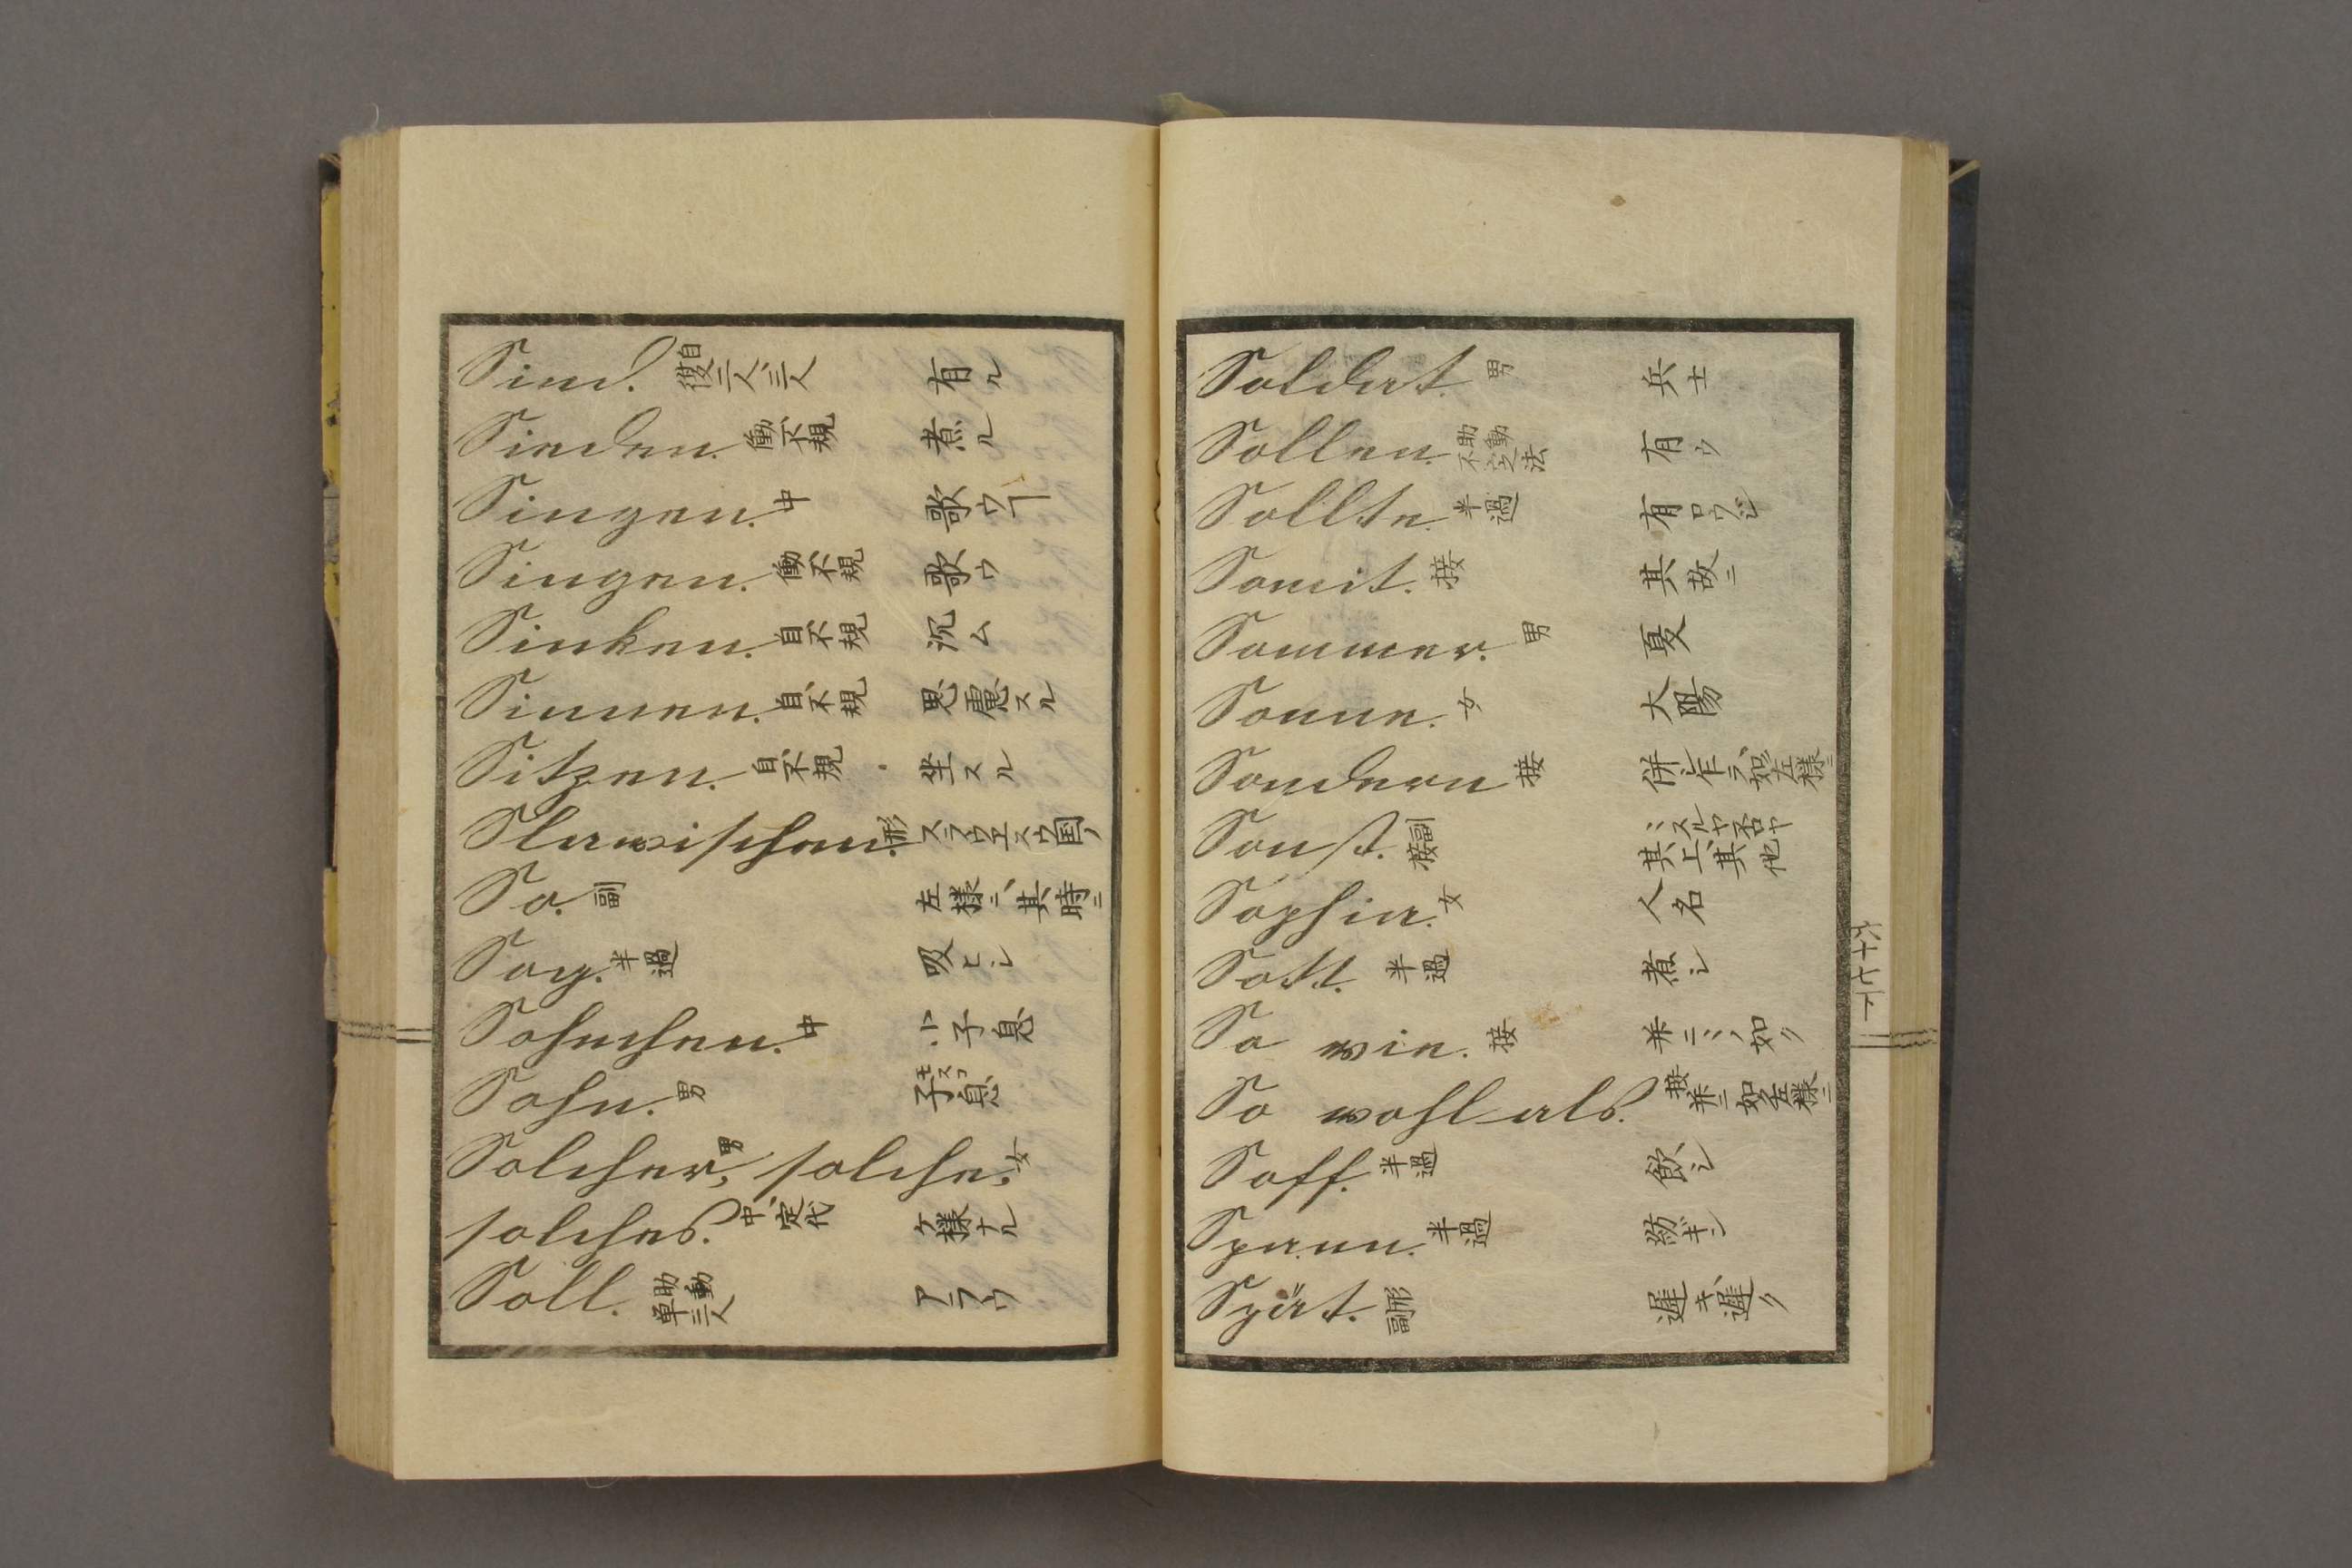 Sind. 複自二人、三人 有ル
Sieden. 働、不規 煮ル
Singen. 中 歌ウヿ
Singen. 働、不規 歌ウ
Sinken. 自、不規 沉ム
Sinnen. 自、不規 思慮スル
Sitzen. 自、不規 坐スル
Slawischen. 形 スラウエスウ国ノ
So. 副 左様ニ、其時ニ
Sog. 半過 吸ヒシ
Sohnchen. 中 小子息
Sohn. 男 子息
Solcher, 男 solche, 女
solches. 中、定代 ケ様ナル
Soll. 助動単三人 アラウ
Soldat. 男 兵士
Sollen. 助動不定法 有ウ
Sollte. 半過 有ロウシ
Somit. 接 其故ニ
Sommer. 男 夏
Sonne. 女 太陽
Sondern 接 併乍ラ、如左様ニ
Sonst. 副接 其上、其他
Sophia. 女 人名
Sott. 半過 煮シ
So wie. 接 如ク
So wohl als. 接 如左様ニ
Soff. 半過 飲シ
Spann. 半過 紡ギシ
Spät. 形副 遅キ、遅ク